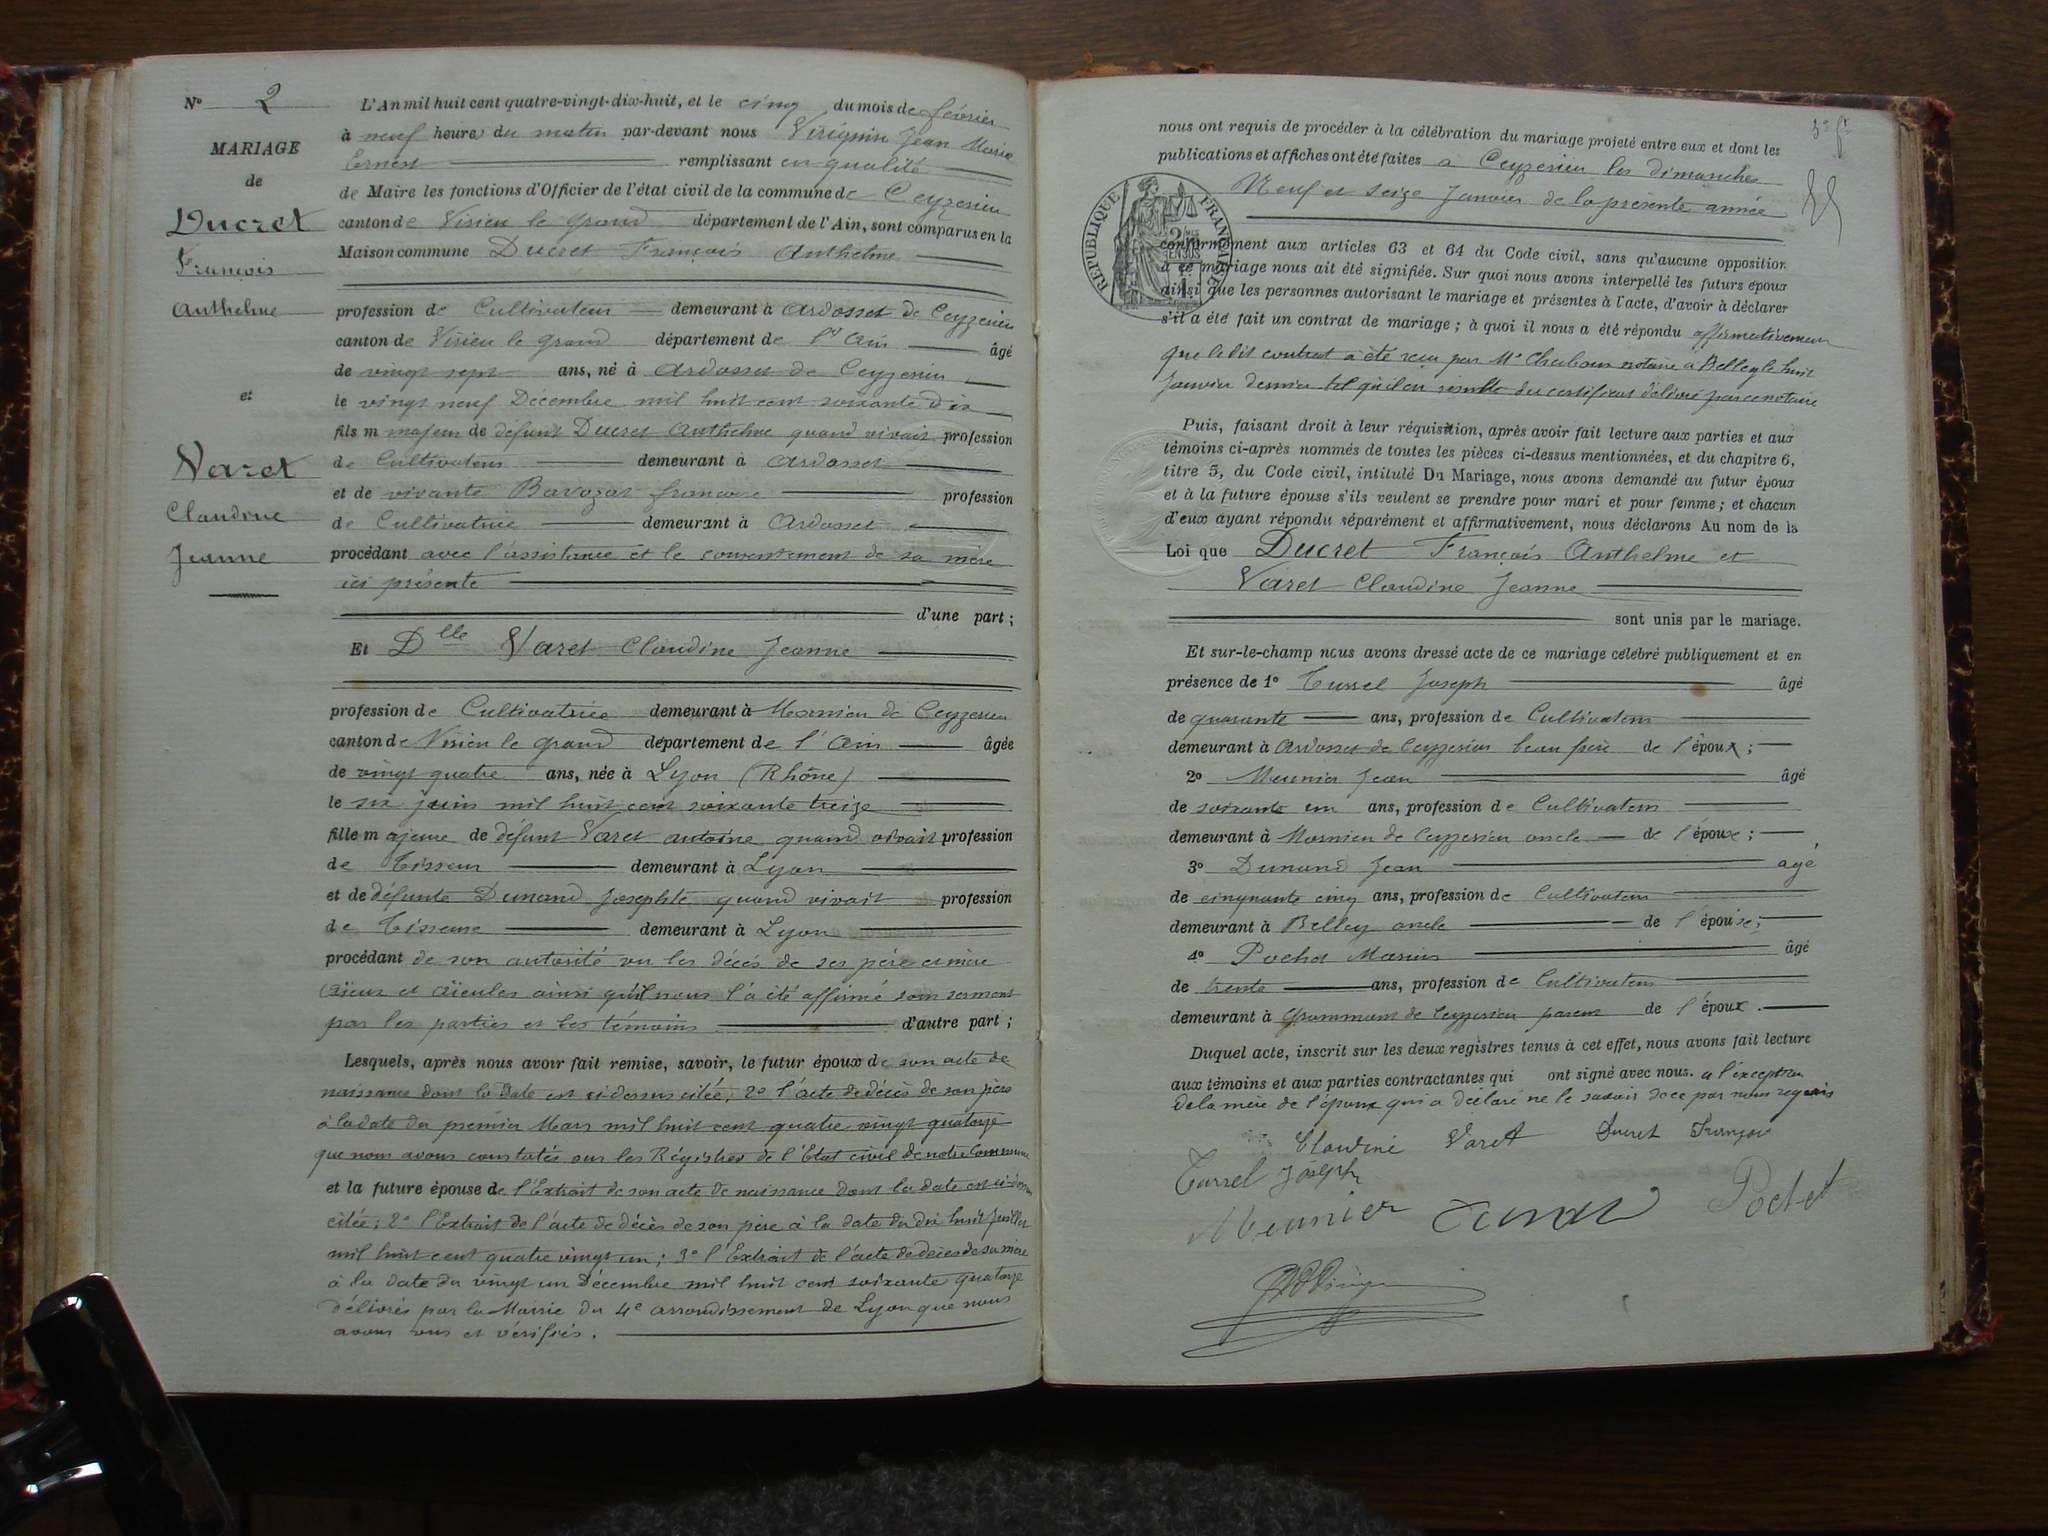 Nº 2
MARIAGE
de
Ducret
François
Anthelme
et
Varet
Claudine
Jeanne
L'An mil huit cent quatre-vingt-dix-huit, et le cinq du mois de février
à neuf heures du matin par-devant nous Virignin Jean Marie
Ernest remplissant en qualité
de Maire les fonctions d'Officier de l'état civil de la commune de Ceyzerieu
canton de Virieu le grand département de l'Ain, sont comparus en la
Maison commune Ducret François Anthelme
profession de Cultivateur demeurant à Ardosset de Ceyzerieu
canton de Virieu le grand département de l'Ain âgé
de vingt sept ans, né à Ardosset de Ceyzerieu
le vingt neuf Décembre mil huit cent soixante dix
fils majeur de défunt Ducret Anthelme quand vivait profession
de Cultivateur demeurant à Ardosset
et de vivante Bavozat françoise profession
de Cultivatrice demeurant à Ardosset
procédant avec l'assistance et le consentement de sa mère
ici présente
d'une part ;
Et Dlle Varet Claudine Jeanne
profession de Cultivatrice demeurant à Mornieu de Ceyzerieu
canton de Virieu le grand département de l'Ain âgée
de vingt quatre ans, née à Lyon (Rhône)
le six juin mil huit cent soixante treize
fille majeure de défunt Varet antoine quand vivait profession
de Tisseur demeurant à Lyon
et de défunte Dunand Josephte quand vivait profession
de Tisseuse demeurant à Lyon
procédant de son autorité vu les décès de ses père et mère
aïeux et aïeules ainsi qu'il nous l'a été affirmé sous serment
par les parties et les témoins d'autre part ;
Lesquels, après nous avoir fait remise, savoir, le futur époux de son acte de
naissance dont la date est ci-dessus citée ; 2º l'acte de décès de son père
à la date du premier Mars mil huit cent quatre vingt quatorze
que nous avons constatés sur les Régistres de l'Etat civil de notre Commune
et la future épouse de l'Extrait de son acte de naissance dont la date est ci-dessus
citée ; 2º l'Extrait de l'acte de décès de son père à la date du dix huit Juillet
mil huit cent quatre vingt un ; 3º l'Extrait de l'acte de décès de sa mère
à la date du vingt un Décembre mil huit cent soixante quatorze
délivrés par la Mairie du 4e arrondissement de Lyon que nous
avons vus et vérifiés.
nous ont requis de procéder à la célébration du mariage projeté entre eux et dont les
publications et affiches ont été faites à Ceyzerieu les dimanches
Neuf et seize Janvier de la présente année
RÉPUBLIQUE FRANÇAISE
conformément aux articles 63 et 64 du Code civil, sans qu'aucune opposition
à ce mariage nous ait été signifiée. Sur quoi nous avons interpellé les futurs époux
ainsi que les personnes autorisant le mariage et présentes à l'acte, d'avoir à déclarer
s'il a été fait un contrat de mariage ; à quoi il nous a été répondu affirmativement
que le dit contrat a été reçu par Me notaire à Belley le huit
Janvier dernier tel qu'il en résulte du certificat délivré par ce notaire
Puis, faisant droit à leur réquisition, après avoir fait lecture aux parties et aux
témoins ci-après nommés de toutes les pièces ci-dessus mentionnées, et du chapitre 6,
titre 5, du Code civil, intitulé Du Mariage, nous avons demandé au futur époux
et à la future épouse s'ils veulent se prendre pour mari et pour femme ; et chacun
d'eux ayant répondu séparément et affirmativement, nous déclarons Au nom de la
Loi que Ducret François Anthelme et
Varet Claudine Jeanne
sont unis par le mariage.
Et sur-le-champ nous avons dressé acte de ce mariage célébré publiquement et en
présence de 1º Turrel Joseph âgé
de quarante ans, profession de Cultivateur
demeurant à Ardosset de Ceyzerieu beau frère de l'époux ;
2º Meunier Jean âgé
de soixante un ans, profession de Cultivateur
demeurant à Mornieu de Ceyzerieu oncle de l'épouse ;
3º Dunand Jean âgé
de cinquante cinq ans, profession de Cultivateur
demeurant à Belley oncle de l'épouse ;
4º Pochet Marius âgé
de trente ans, profession de Cultivateur
demeurant à Grammont de Ceyzerieu parent de l'époux.
Duquel acte, inscrit sur les deux registres tenus à cet effet, nous avons fait lecture
aux témoins et aux parties contractantes qui ont signé avec nous. a l'exception
de la mère de l'époux qui a déclaré ne le savoir de ce par nous requis
Claudine Varet Ducret François
Turrel Joseph
Meunier Dunand Pochet